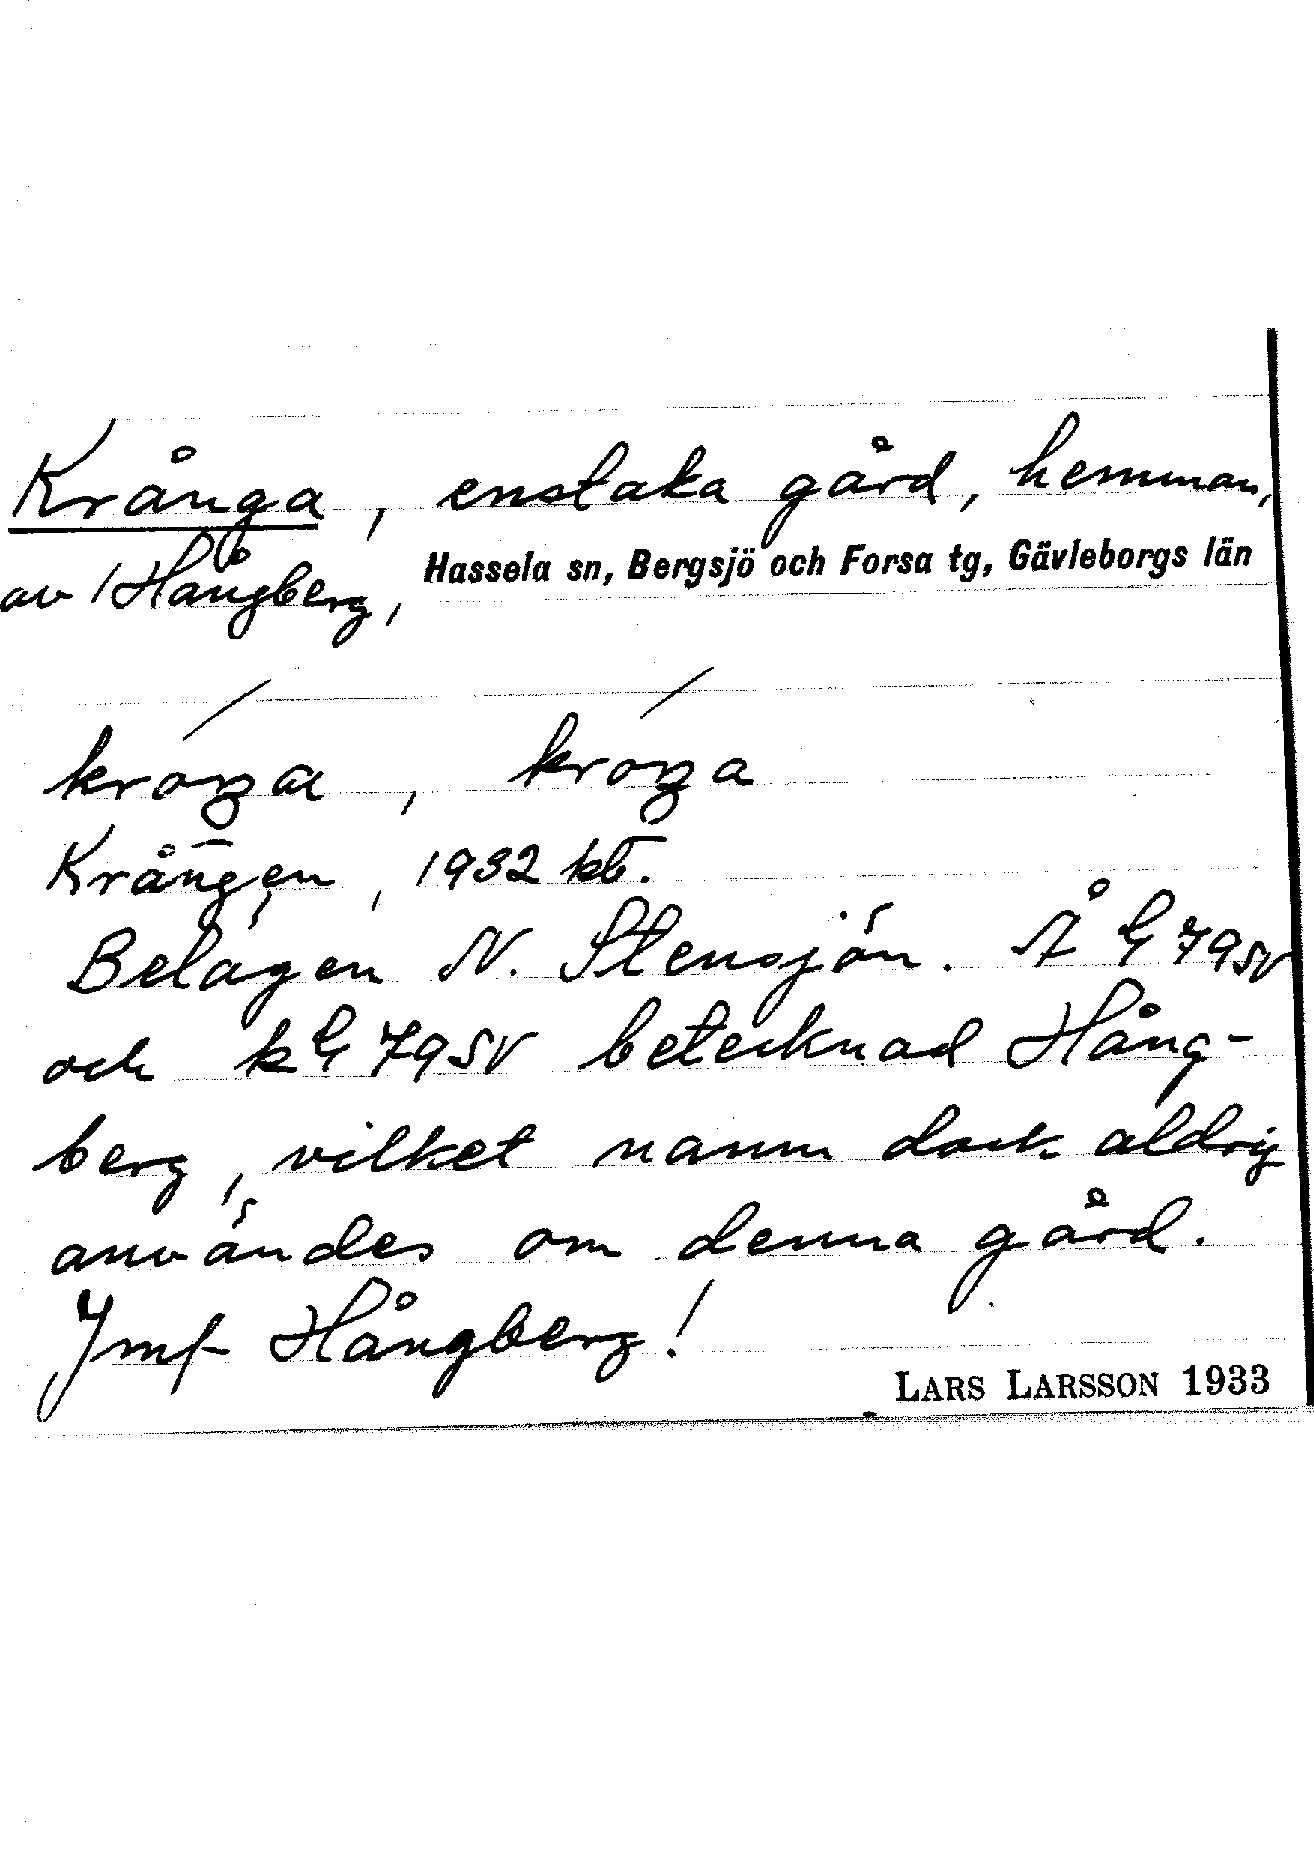 Krånga, enstaka gård, hemman,
av 1 Hångberg, Hassela sn, Bergsjö och Forsa tg, Gävleborgs län
kroŋa, kroŋa
Krången, 1932 kb.
Belägen N. Stensjön. Å G 79 SV
och k G 79 SV betecknad Hång-
berg, vilket namn dock aldrig
användes om denna gård.
Jmf Hångberg!
LARS LARSSON 1933